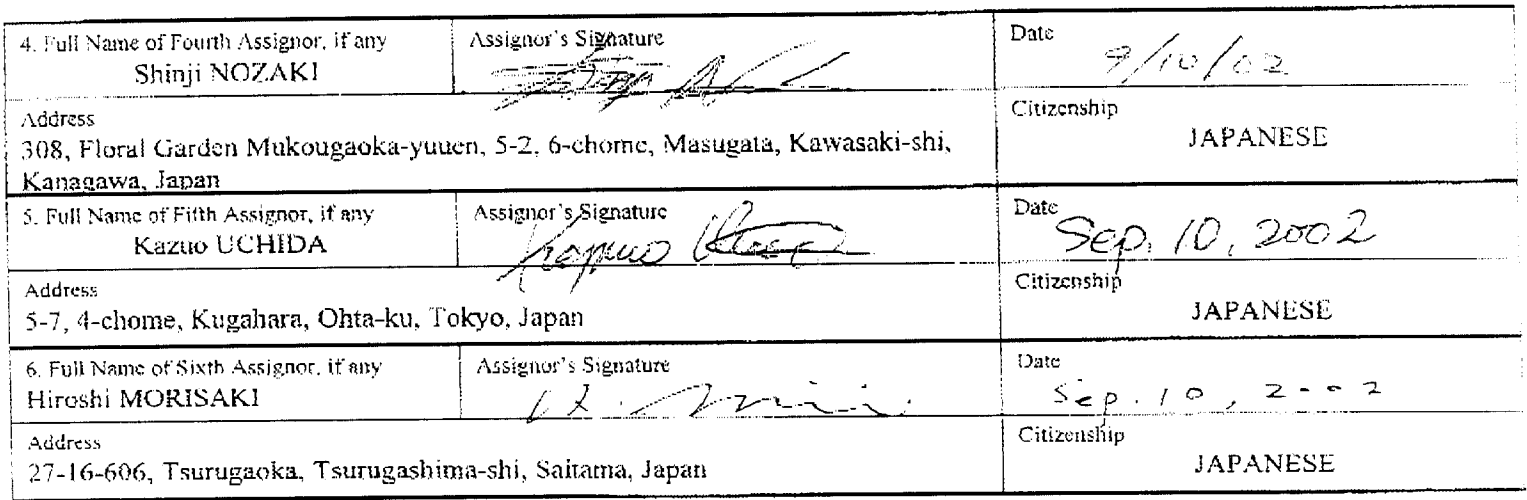 4. Full Name of Fourth Assignor, if any
Shinji NOZAKI
Assignor's Signature
Date
9/10/02
Address
308, Floral Garden Mukougaoka-yuuen, 5-2, 6-chome, Masugata, Kawasaki-shi,
Kanagawa, Japan
Citizenship
JAPANESE
5. Full Name of Fifth Assignor, if any
Kazuo UCHIDA
Assignor's Signature
Kazuo Uchida
Date
Sep. 10, 2002
Address
5-7, 4-chome, Kugahara, Ohta-ku, Tokyo, Japan
Citizenship
JAPANESE
6. Full Name of Sixth Assignor, if any
Hiroshi MORISAKI
Assignor's Signature
Date
Sep. 10, 2002
Address
27-16-606, Tsurugaoka, Tsurugashima-shi, Saitama, Japan
Citizenship
JAPANESE